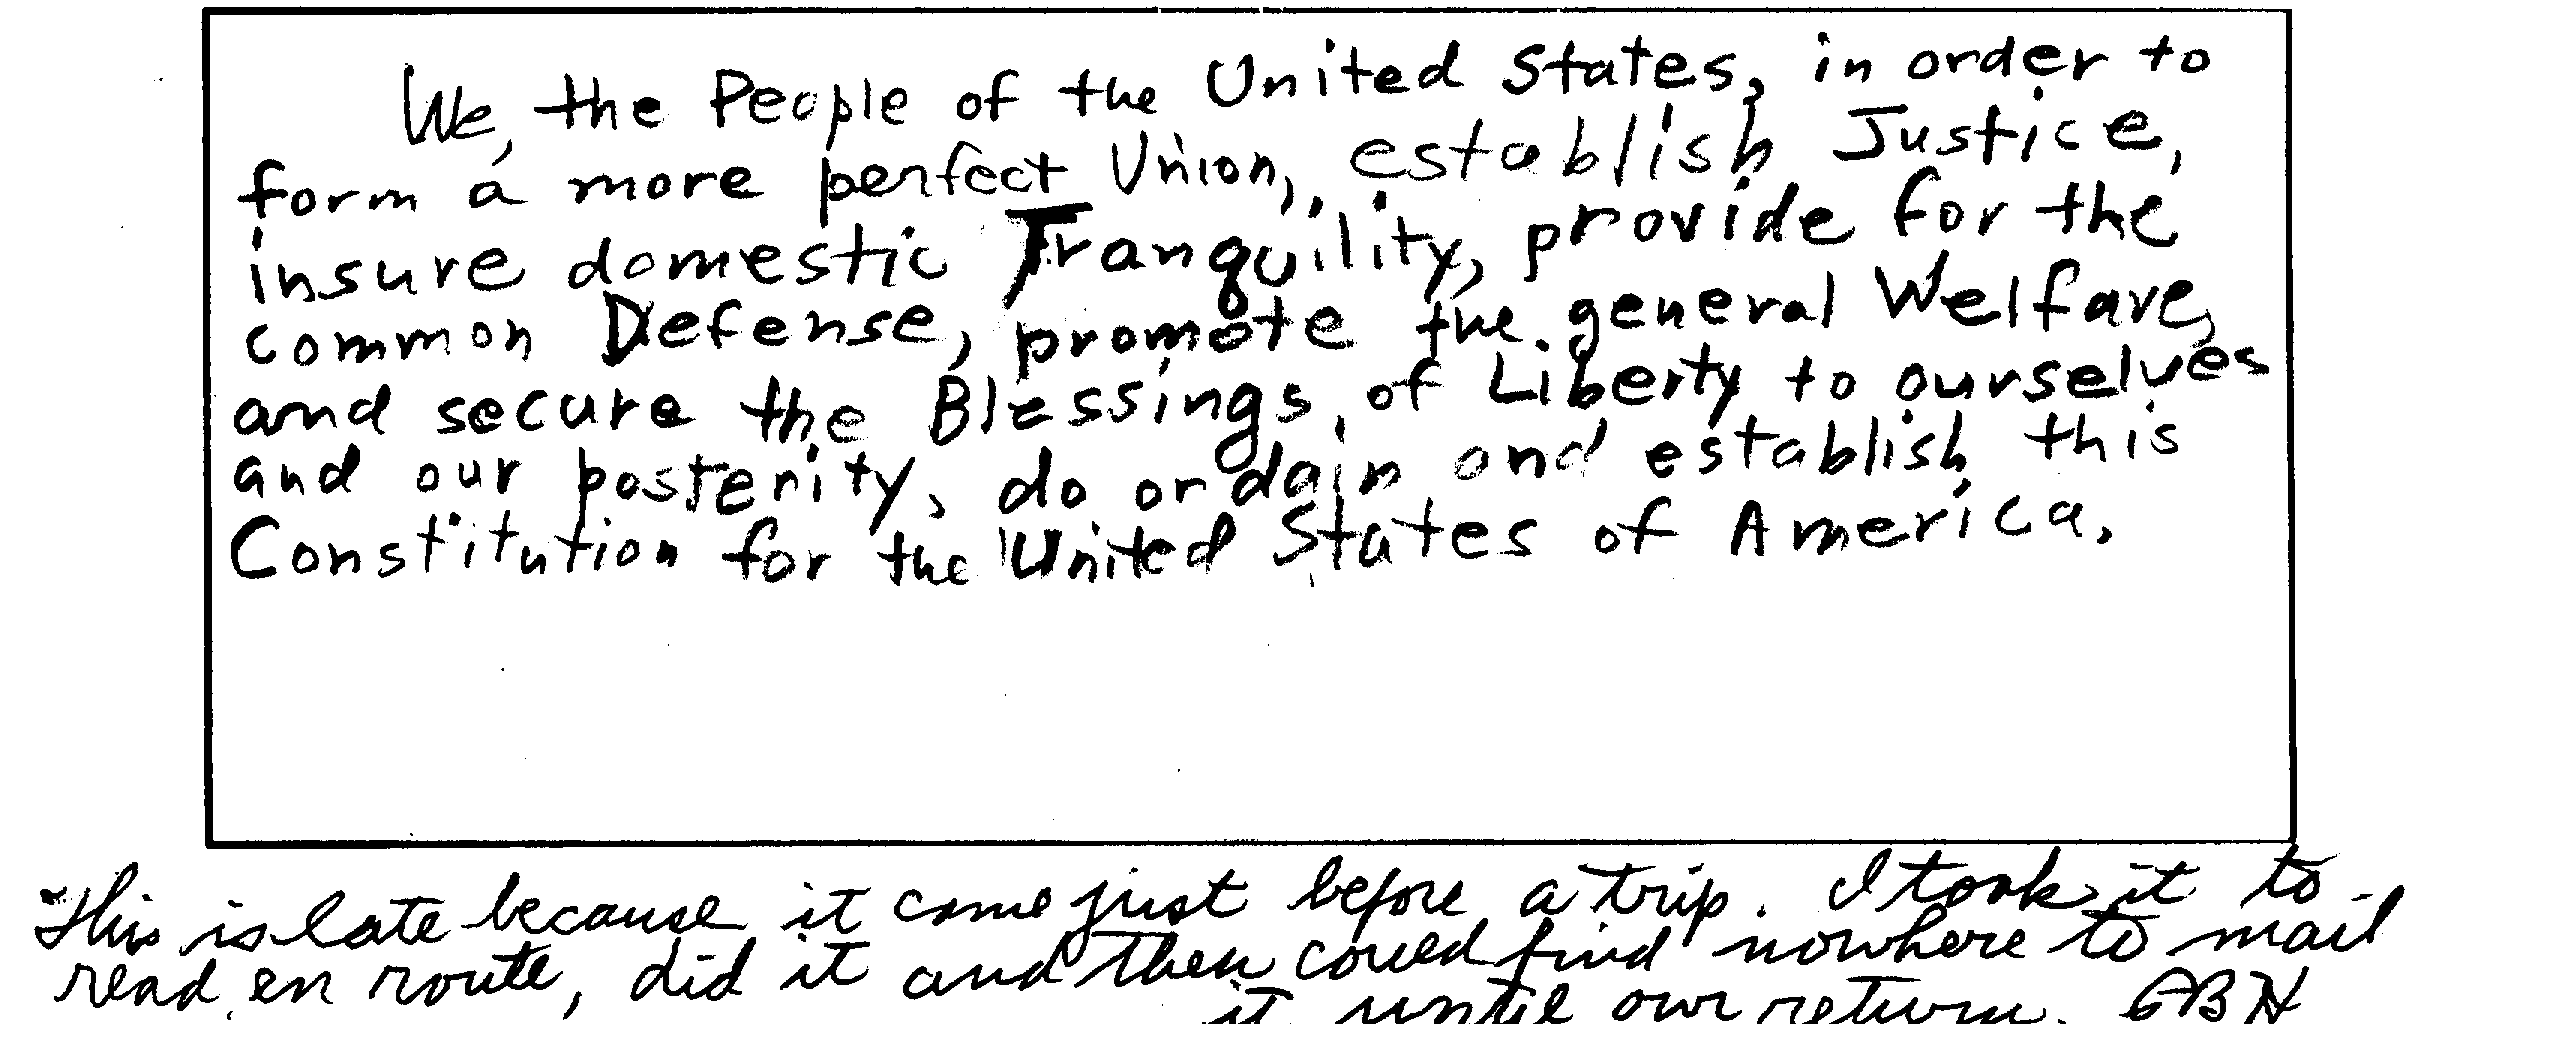 We, the People of the United States, in order to
form a more perfect Union, establish Justice,
insure domestic Tranquility, provide for the
common Defense, promote the general Welfare,
and secure the Blessings of Liberty to ourselves
and our posterity, do ordain and establish this
Constitution for the United States of America.
This is late because it came just before a trip. I took it to
read en route, did it and then could find nowhere to mail
it until our return. GBH